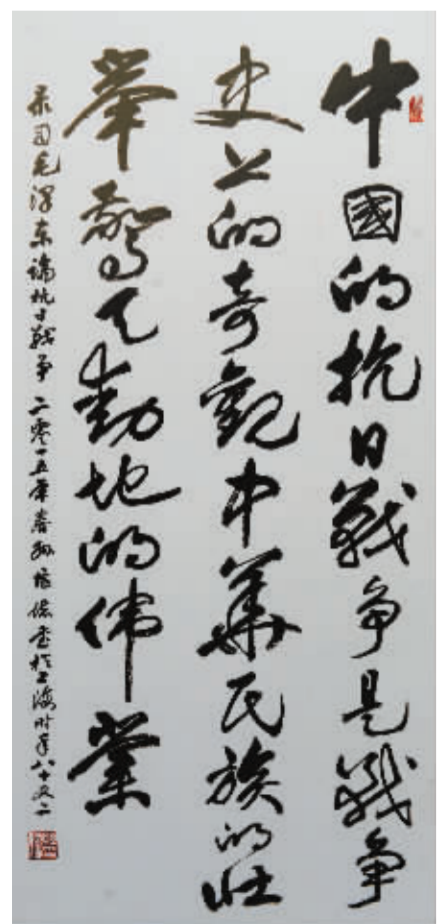 中國的抗日戰争是戰争
史上的奇觀中華民族的壮
舉驚天動地的伟業
录自毛泽东論抗日戰争 二零一五年春孙 书於上海时年八十又二